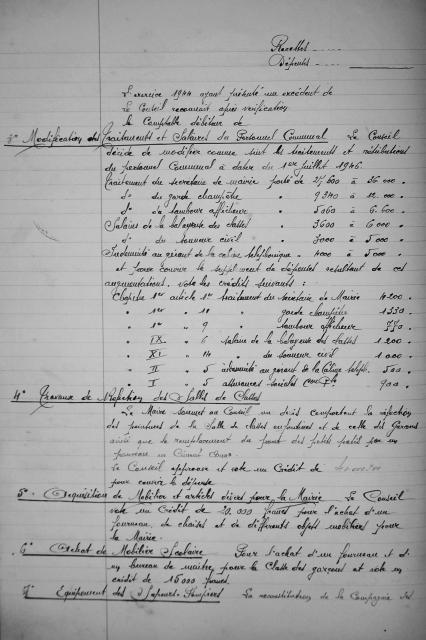 Recettes ......
Dépenses .....
L'exercice 1944 ayant présenté un excédent de
Le Conseil reconnait après vérification
le Comptable débiteur de
3° Modification des Traitements et Salaires du Personnel Communal Le Conseil
décide de modifier comme suit les traitements et rétributions
du personnel Communal à dater du 1er Juillet 1946.
Traitement du secrétaire de mairie porté de à 26 000 .
d° du garde champêtre " 9340 à 12 000 .
d° du tambour afficheur " 5060 à 6.600 .
Salaire de la balayeuse des classes 3600 à 6000 .
d° du sonneur civil " 3000 à 5000 .
Indemnité au gérant de la cabine téléphonique . 4000 à 5000 .
et pour couvrir le supplément de dépenses résultant de ces
augmentations, vote les crédits suivants :
Chapitre 1er article 1er traitement du Secrétaire de Mairie 4200 .
" 1er " garde champêtre 1330 .
" 1er " 9 " tambour afficheur 770 .
" IX " 6 salaire de la balayeuse des classes 1 200 .
" XI " 14 du sonneur civil 1 000 .
" II " 5 indemnité au gérant de la cabine téléph. 500 .
" I " 5 assurances sociales 900 .
4° Travaux de Réfection des Salles de Classes
Le Maire soumet au Conseil un devis comportant la réfection
des peintures de la Salle de classes enfantines et de celle des Garçons
ainsi que le remplacement du
Le Conseil approuve et vote un Crédit de
pour couvrir la dépense
5° - Acquisition de Mobilier et articles divers pour la Mairie Le Conseil
vote un Crédit de 20.000 francs pour l'achat d'un
fourneau, de chaises et de différents objets mobiliers pour
la Mairie.
6° Achat de Mobilier Scolaire Pour l'achat d'un fourneau et d'
un bureau de maître, pour la Classe des garçons et vote un
crédit de 15000 francs.
7° Equipement des Sapeurs-Pompiers La reconstitution de la Compagnie des